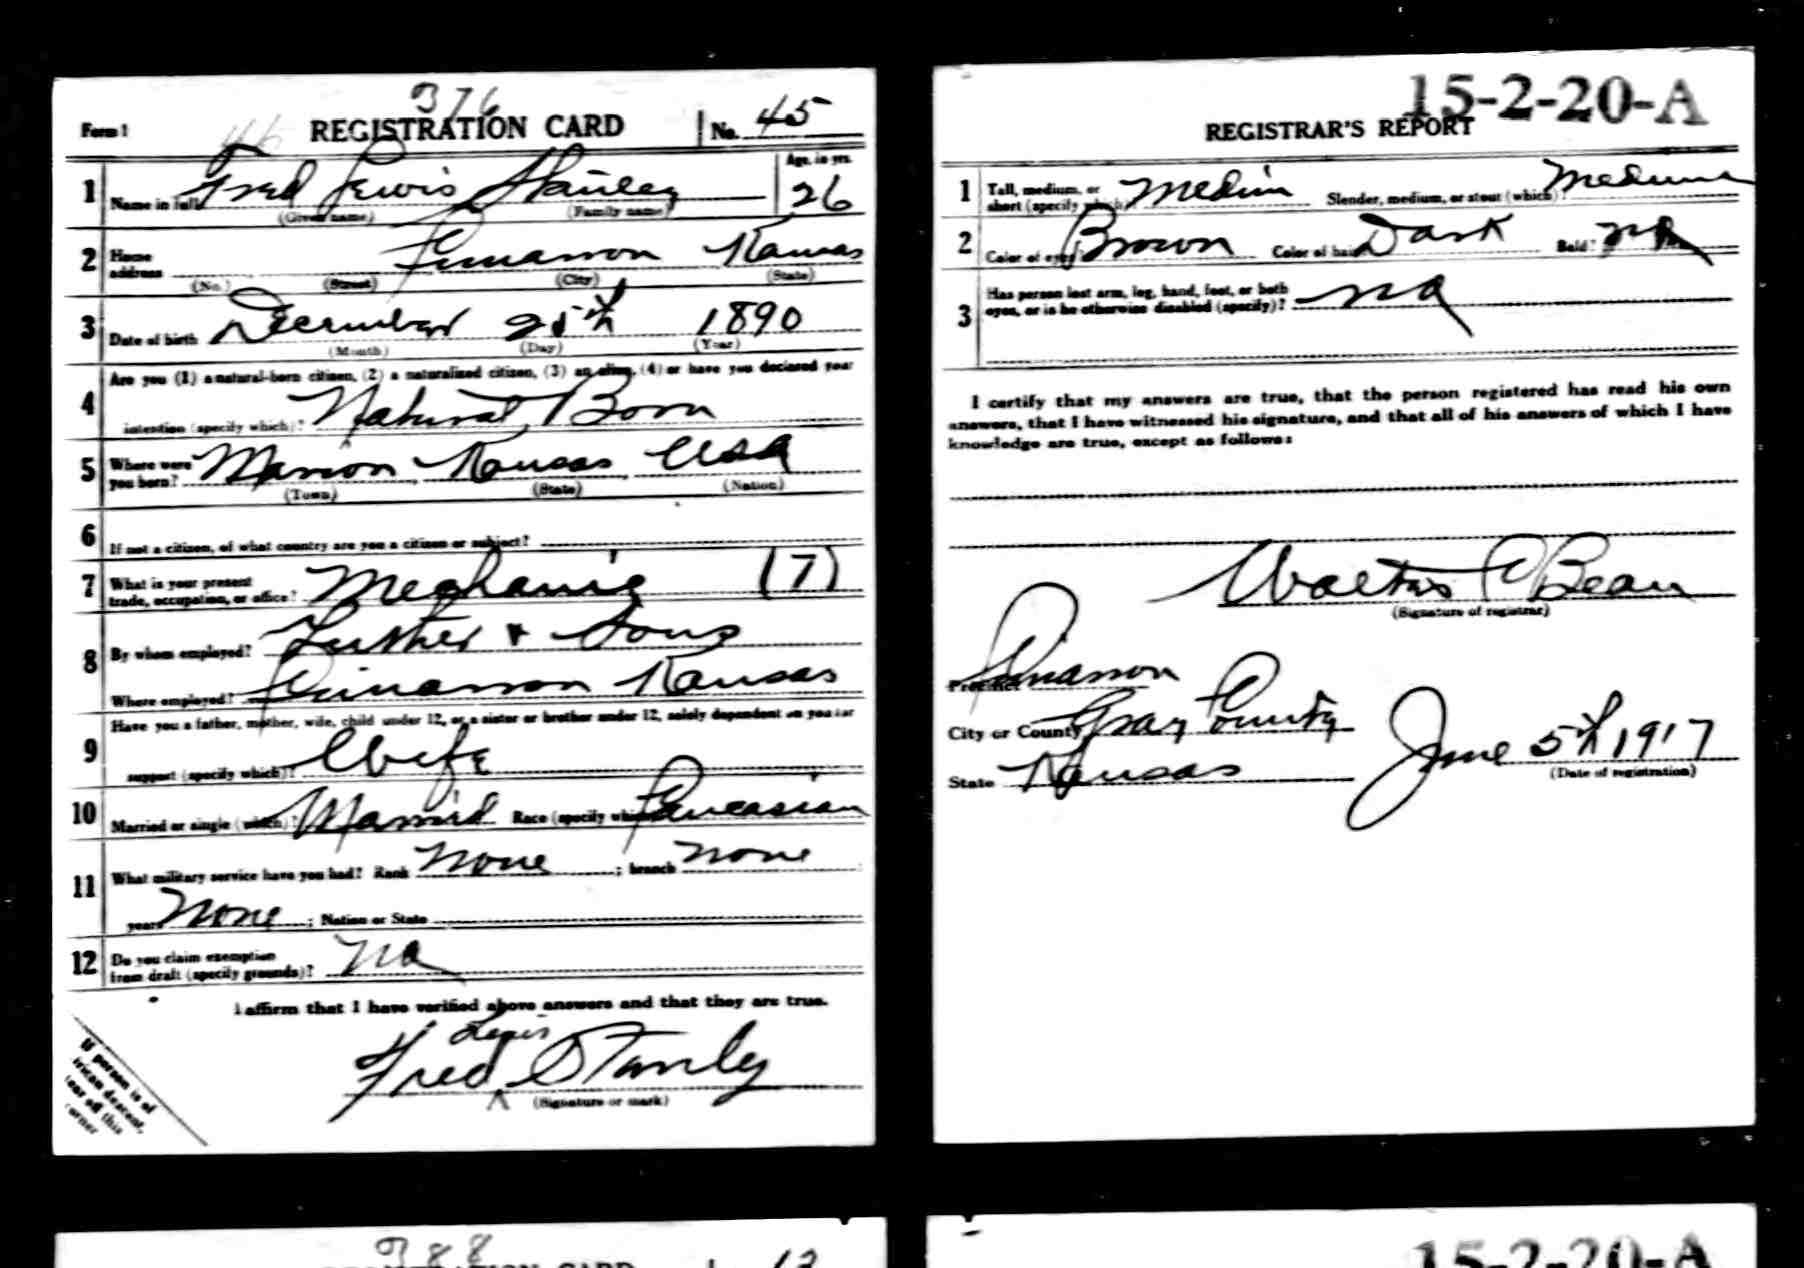 376
Form 1 REGISTRATION CARD No. 45
1 Name in full Fred Lewis Stanley Age, in yrs. 26
(Given name) (Family name)
2 Home address Cimarron Kansas
(No.) (Street) (City) (State)
3 Date of birth December 25th 1890
(Month) (Day) (Year)
Are you (1) a natural-born citizen, (2) a naturalized citizen, (3) an alien, (4) or have you declared your
4 intention (specify which)? Natural Born
5 Where were you born? Marion Kansas USA
(Town) (State) (Nation)
6 If not a citizen, of what country are you a citizen or subject?
7 What is your present trade, occupation, or office? Mechanic (7)
8 By whom employed? Luther & Sons
Where employed? Cimarron Kansas
Have you a father, mother, wife, child under 12, or a sister or brother under 12, solely dependent on you for
9 support (specify which)? Wife
10 Married or single (which)? Married Race (specify which)? Caucasian
11 What military service have you had? Rank None ; branch none
years None ; Nation or State
12 Do you claim exemption from draft (specify grounds)? No
I affirm that I have verified above answers and that they are true.
Fred Lewis Stanley
(Signature or mark)
If person is of
rican descent,
tear off this
corner
15-2-20-A
REGISTRAR'S REPORT
1 Tall, medium, or short (specify which)? Medium Slender, medium, or stout (which)? Medium
2 Color of eyes? Brown Color of hair? Dark Bald? No
3 Has person lost arm, leg, hand, foot, or both
eyes, or is he otherwise disabled (specify)? No
I certify that my answers are true, that the person registered has read his own
answers, that I have witnessed his signature, and that all of his answers of which I have
knowledge are true, except as follows:
Walter C Bean
(Signature of registrar)
Precinct Cimarron
City or County Gray County
State Kansas June 5th 1917
(Date of registration)
388
REGISTRATION CARD
15-2-20-A